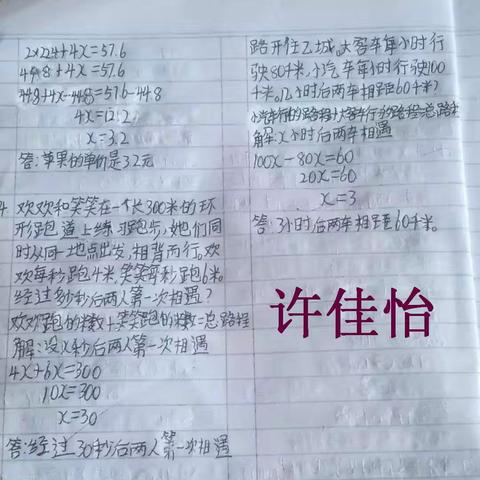 2×22.4+4x=57.6
44.8+4x=57.6
44.8+4x-44.8=57.6-44.8
4x=12.2
x=3.2
答:苹果的单价是3.2元
4. 欢欢和笑笑在一个长300米的环
形跑道上练习跑步,她们同
时从同一地点出发,相背而行。欢
欢每秒跑4米,笑笑每秒跑6米。
经过多少秒后两人第一次相遇?
欢欢跑的米数+笑笑跑的米数=总路程
解:设x秒后两人第一次相遇
4x+6x=300
10x=300
x=30
答:经过30秒后两人第一次相遇
路开往乙城。大客车每小时行
驶80千米,小汽车每小时行驶100
千米。几小时后两车相距60千米?
解:x小时后两车相遇
100x-80x=60
20x=60
x=3
答:3小时后两车相距60千米。
许佳怡